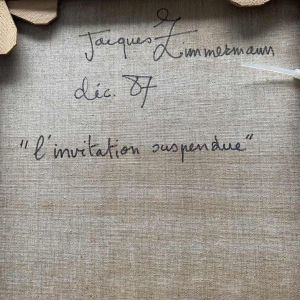 Jacques Zimmermann
déc. 87
"l'invitation suspendue"